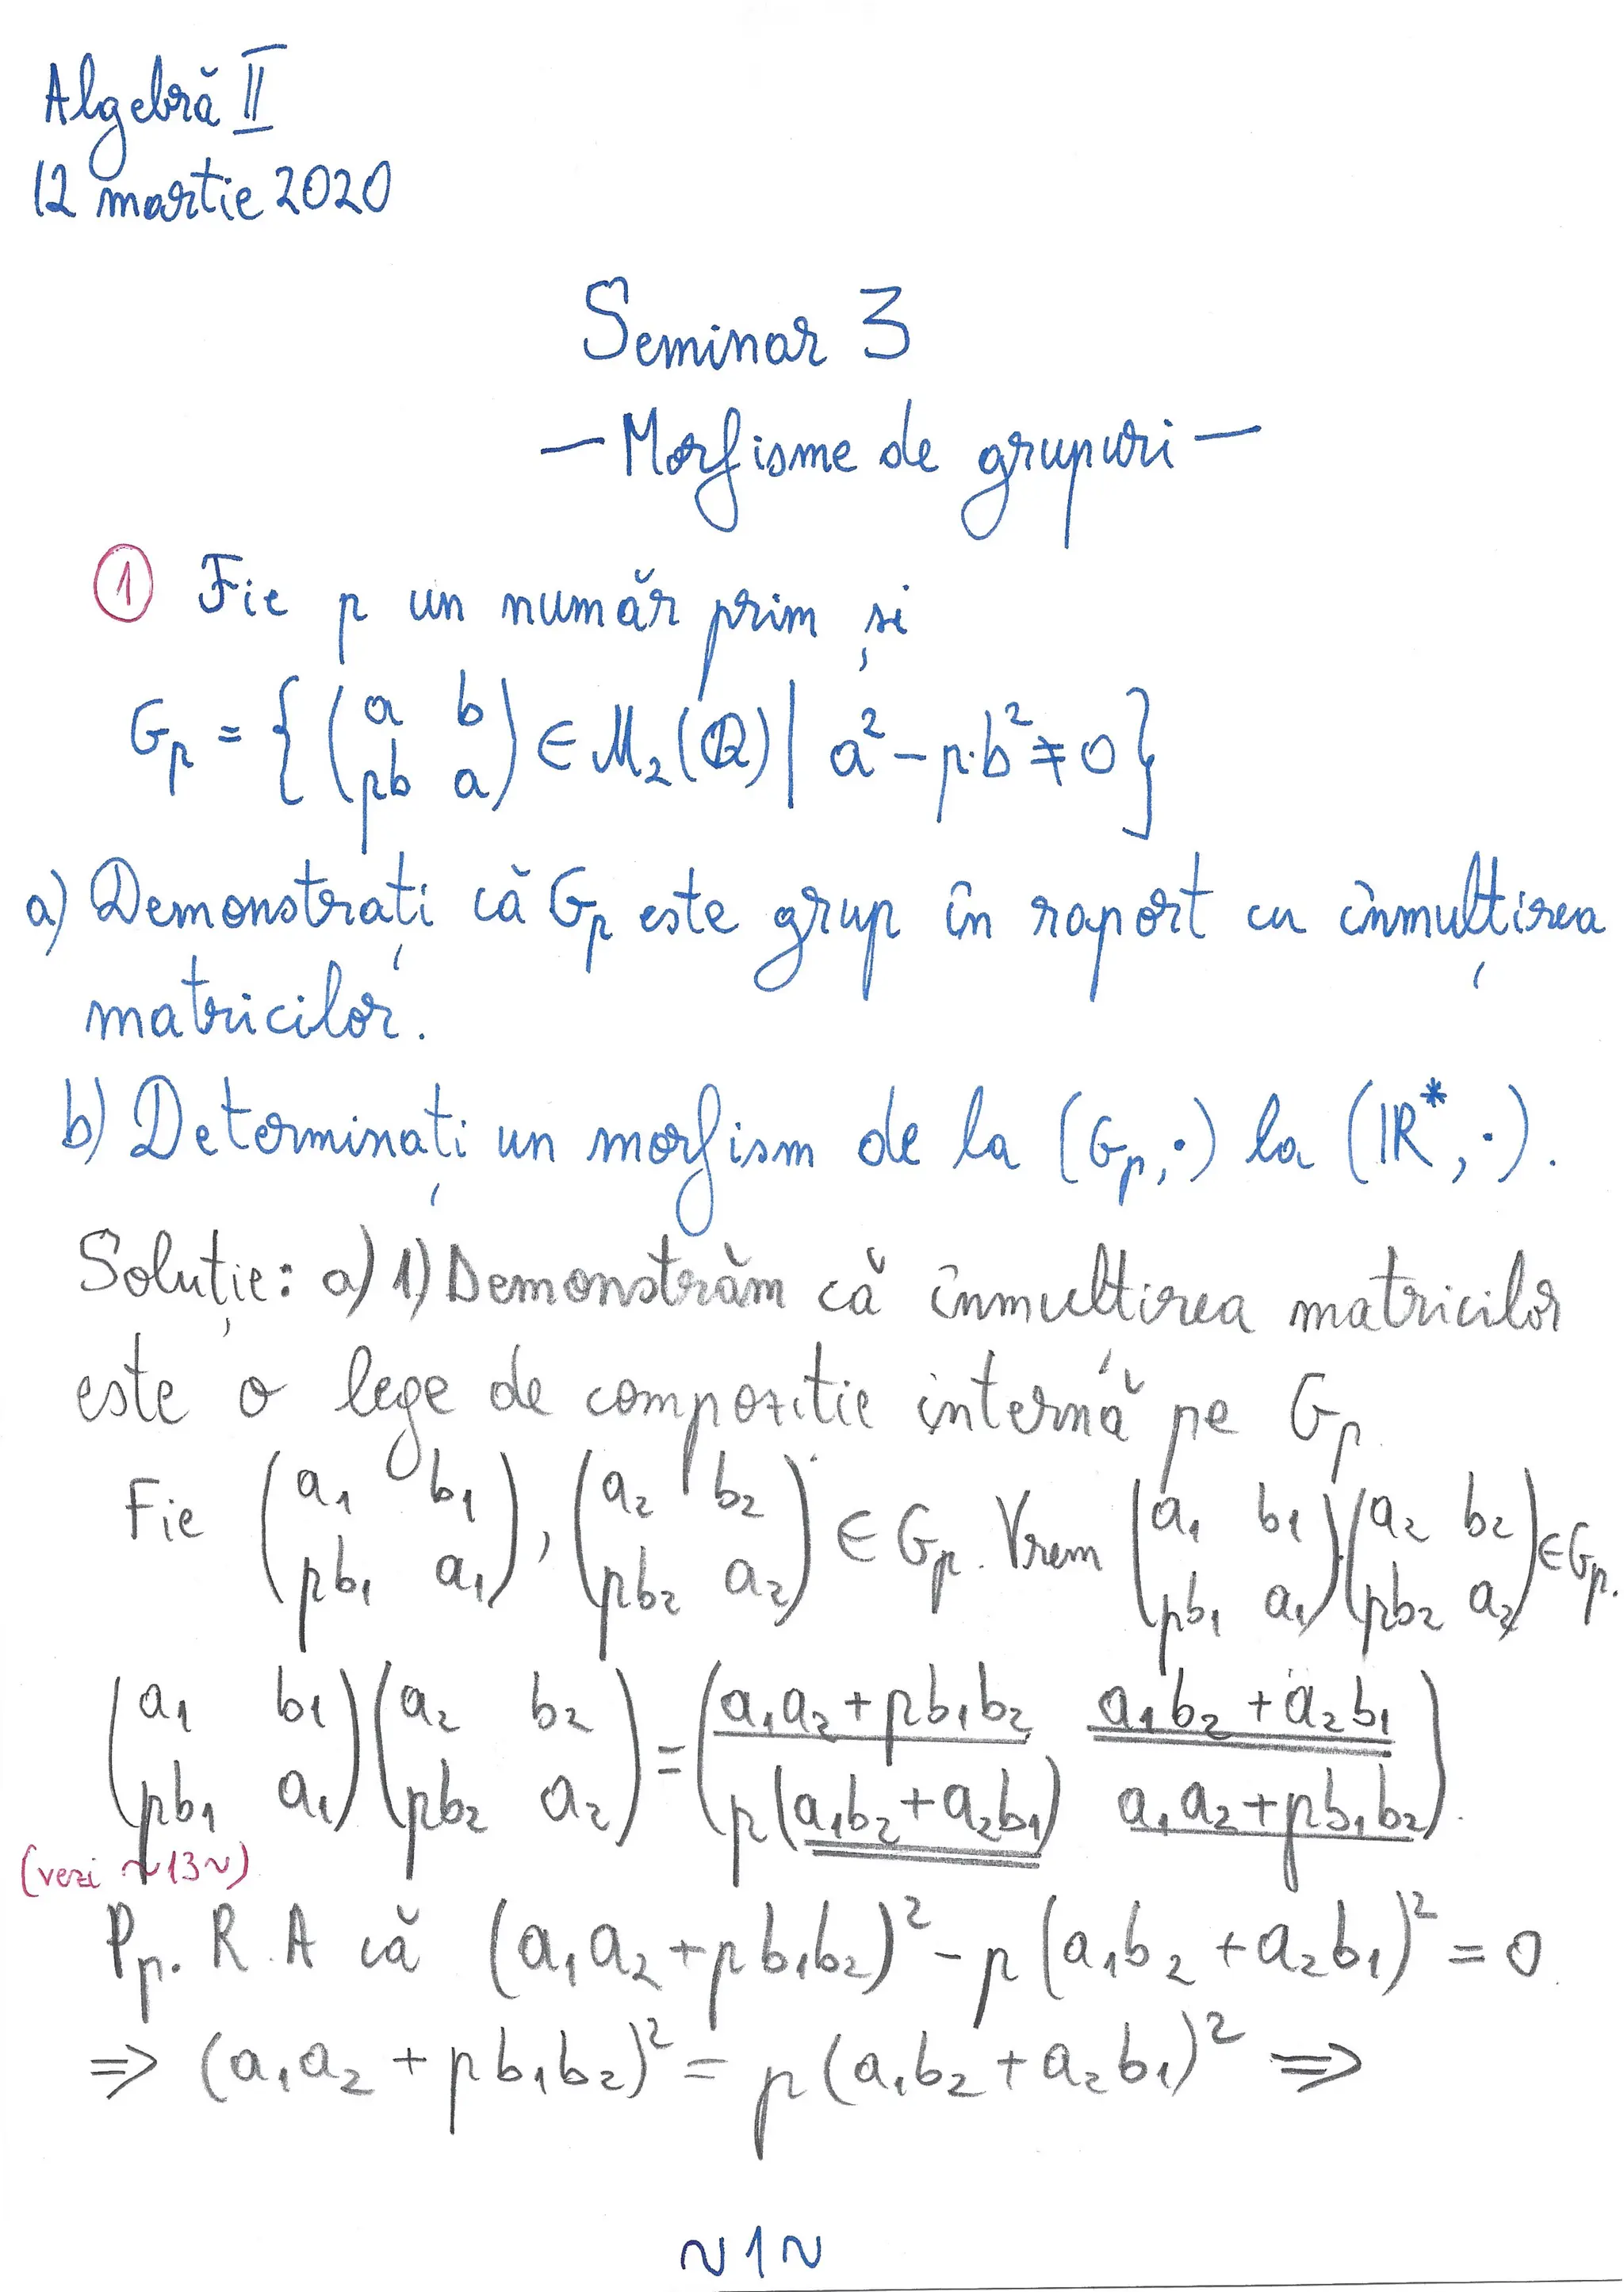 Algebră II
12 martie 2020
Seminar 3
— Morfisme de grupuri —
① Fie p un număr prim și
G_p = { ( a b ; pb a ) ∈ M_2(Q) | a² - p·b² ≠ 0 }
a) Demonstrați că G_p este grup în raport cu înmulțirea
matricilor.
b) Determinați un morfism de la (G_p, ·) la (ℝ*, ·).
Soluție: a) 1) Demonstrăm că înmultirea matricilor
este o lege de compozitie internă pe G_p.
Fie ( a₁ b₁ ; pb₁ a₁ ), ( a₂ b₂ ; pb₂ a₂ ) ∈ G_p. Vrem ( a₁ b₁ ; pb₁ a₁ )( a₂ b₂ ; pb₂ a₂ ) ∈ G_p.
( a₁ b₁ ; pb₁ a₁ )( a₂ b₂ ; pb₂ a₂ ) = ( a₁a₂ + pb₁b₂ a₁b₂ + a₂b₁ ; p(a₁b₂ + a₂b₁) a₁a₂ + pb₁b₂ ).
(vezi ~13~)
Pp. R.A că (a₁a₂ + pb₁b₂)² - p(a₁b₂ + a₂b₁)² = 0.
⇒ (a₁a₂ + pb₁b₂)² = p(a₁b₂ + a₂b₁)² ⇒
~1~